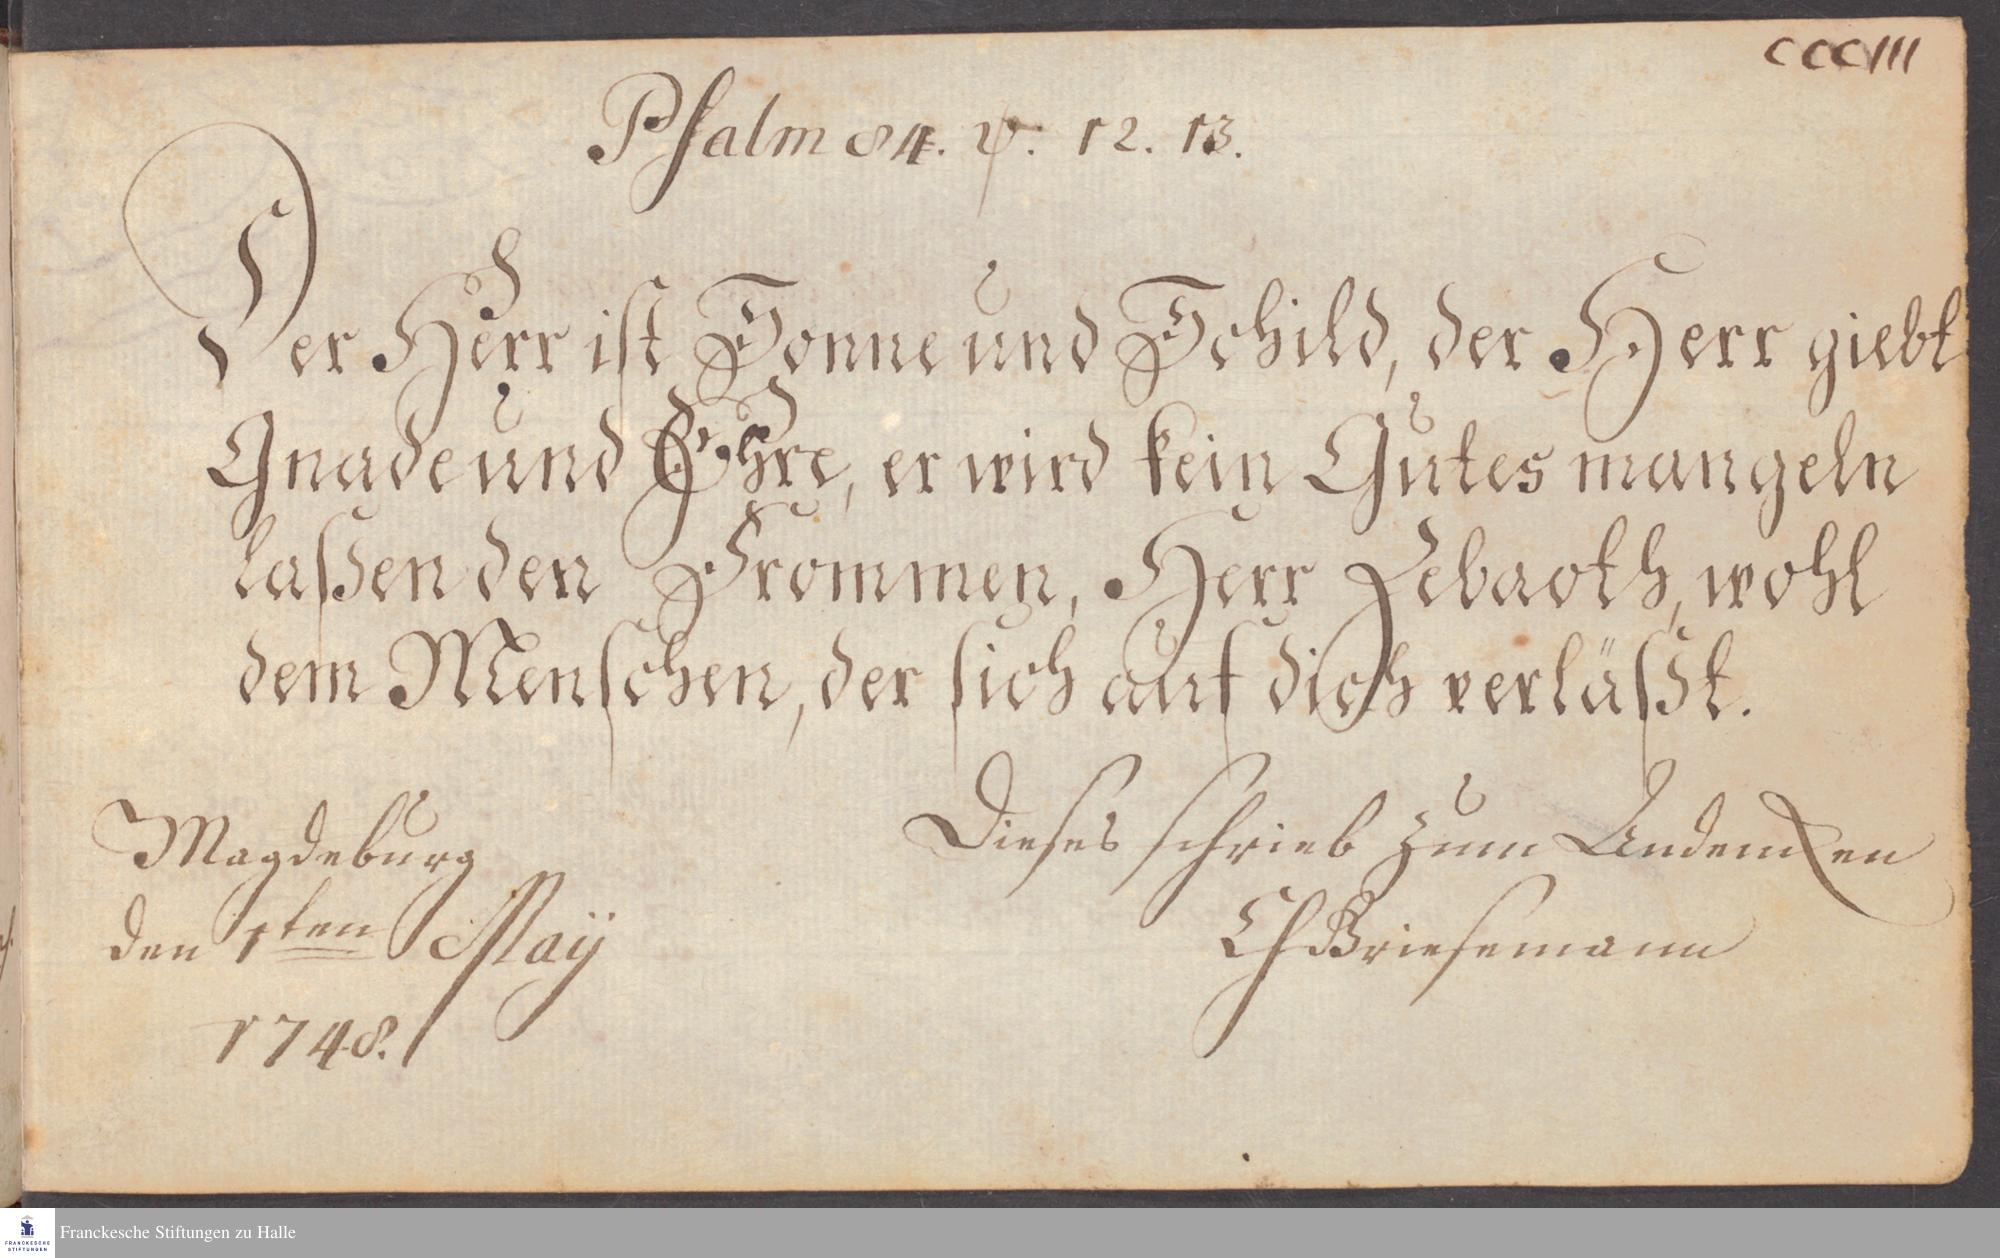 CCCVIII
Psalm 84. v. 12. 13.
Der Herr ist Sonne und Schild, der Herr giebt
Gnade und Ehre, er wird kein Gutes mangeln
laßen den Frommen, Herr Zebaoth, wohl
dem Menschen, der sich auf dich verläßt.
Magdeburg
den 1ten Maÿ
1748.
Dieses schrieb zum Andencken
CfBriesemann
Franckesche Stiftungen zu Halle
FRANCKESCHE
STIFTUNGEN